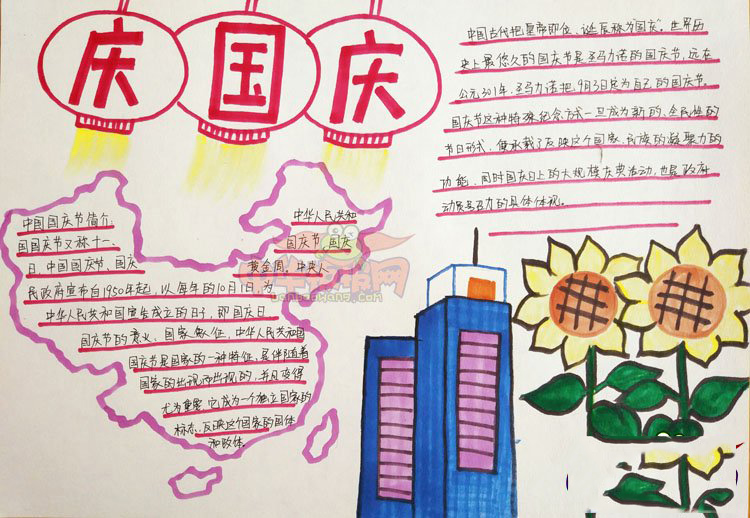 庆国庆
中国古代把皇帝即位、诞辰称为"国庆"。世界历
史上最悠久的国庆节是圣马力诺的国庆节，远在
公元301年，圣马力诺把9月3日定为自己的国庆节。
国庆节这种特殊纪念方式一旦成为新的、全民性的
节日形式，便承载了反映这个国家、民族的凝聚力的
功能。同时国庆日上的大规模庆典活动，也是政府
动员与号召力的具体体现。
中国国庆节简介：
国国庆节又称十一、
日、中国国庆节、国庆
中华人民共和
国庆节、国庆
黄金周。中央人
民政府宣布自1950年起，以每年的10月1日，为
中华人民共和国宣告成立的日子，即国庆日
国庆节的意义，国家象征，中华人民共和国
国庆节是国家的一种特征，是伴随着
国家的出现而出现的，并且变得
尤为重要，它成为一个独立国家的
标志，反映这个国家的国体
和政体